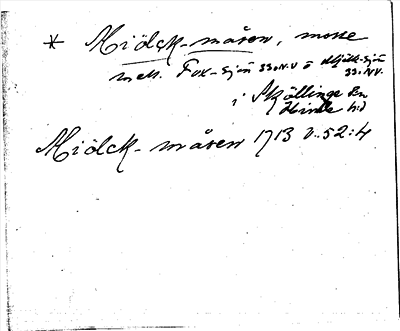 * Miölck-måsen, mosse
mell. Fox-sjön 33.N.V o Mjölk-sjön
33.NV.
i Skällinge sn
Himle hd
Miölck-måsen 1713 v..52:4